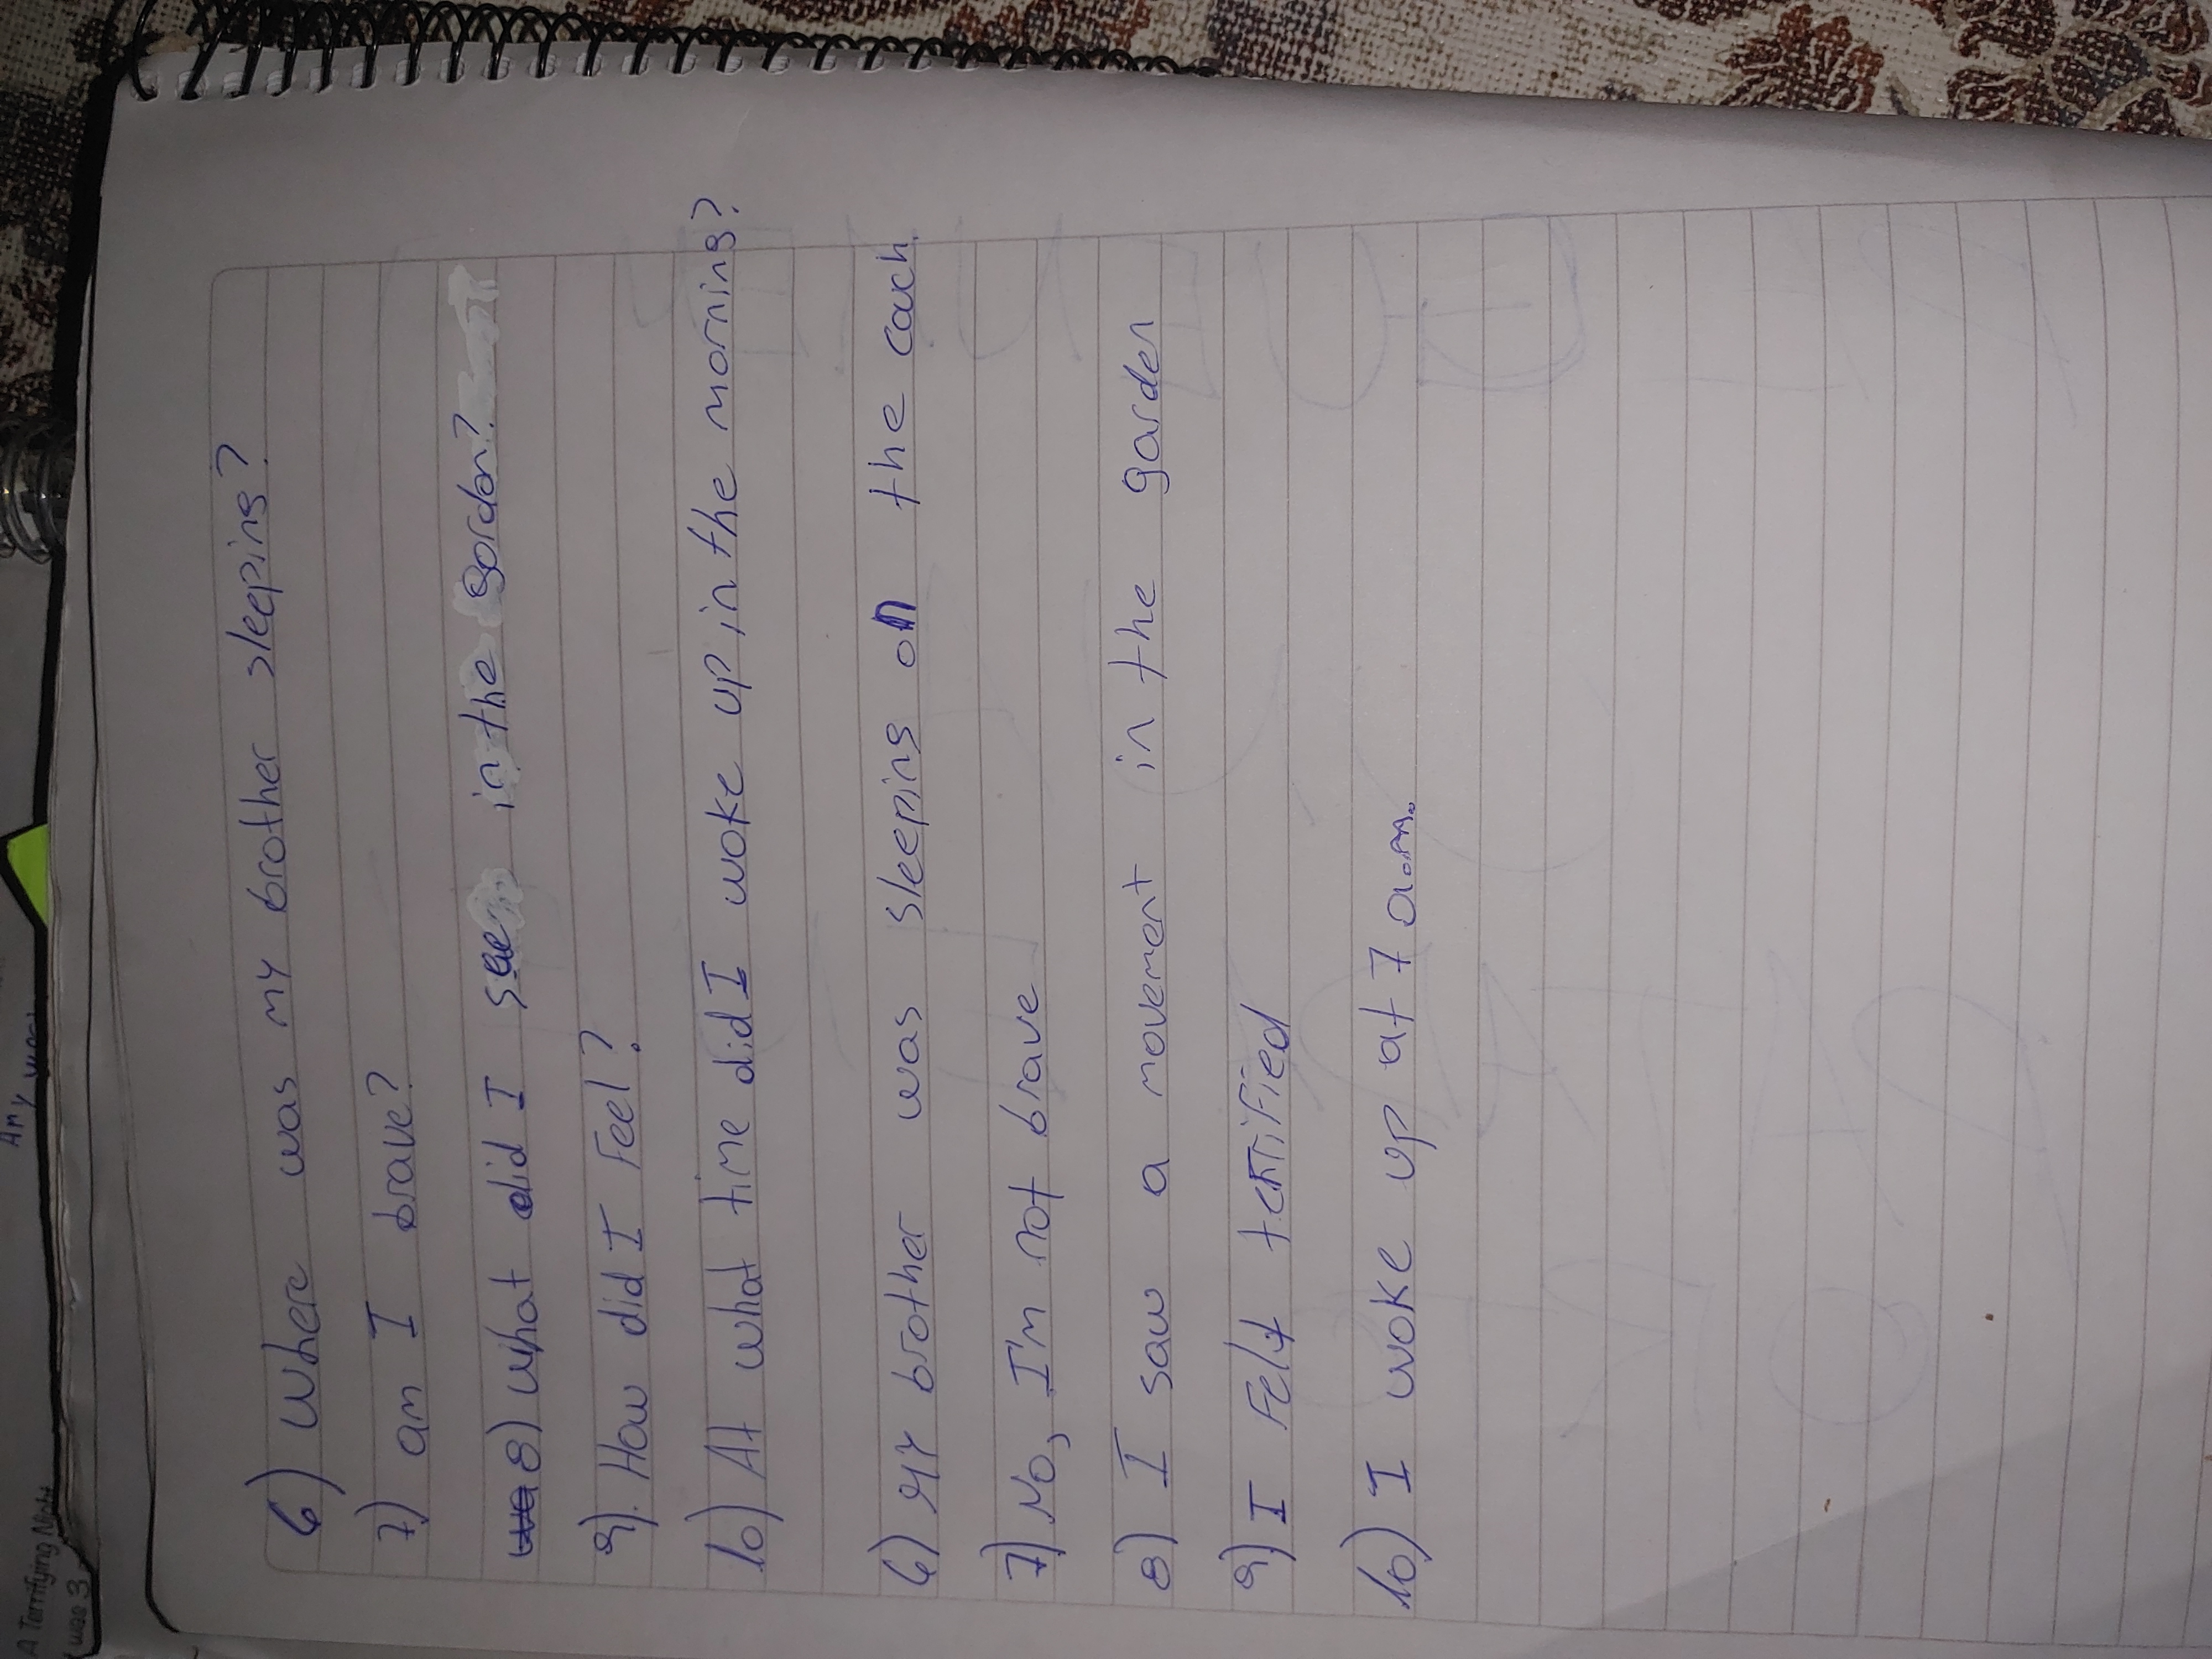 A Terrifying Night
was 3
Any
6) where was my brother sleeping?
7) am I brave?
8) what did I see in the gordon?
9). How did I Feel?
10) At what time did I woke up in the morning?
6) My brother was sleeping on the coach.
7) No, I'm not brave
8) I saw a movement in the garden
9) I Felt terrified
10) I woke up at 7 a.m.